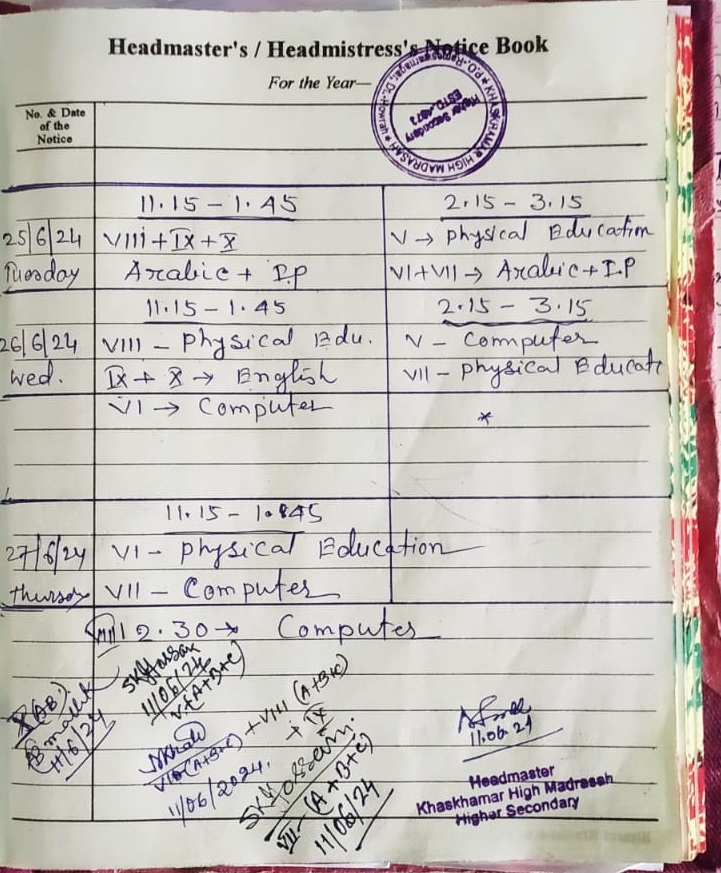 Headmaster's / Headmistress's Notice Book
For the Year—
KHASKHAMAR HIGH MADRASAH
Higher Secondary
No. & Date
of the
Notice
11.15 - 1.45 2.15 - 3.15
25/6/24 VIII + IX + X V → Physical Education
Tuesday Arabic + I.P VI + VII → Arabic + I.P
11.15 - 1.45 2.15 - 3.15
26/6/24 VIII - Physical Edu. V - Computer
Wed. IX + X → English VII - Physical Educati
VI → Computer *
11.15 - 1.45
27/6/24 VI - Physical Education
Thursday VII - Computer
VIII 12.30 → Computer
11/06/24
V (A+B+C)
X (AB)
11/6/24
VI (A+B+C) + VIII (A+B+C)
+ IX
11/06/2024.
VII - (A+B+C)
11/06/24
11.06.24
Headmaster
Khaskhamar High Madrasah
Higher Secondary